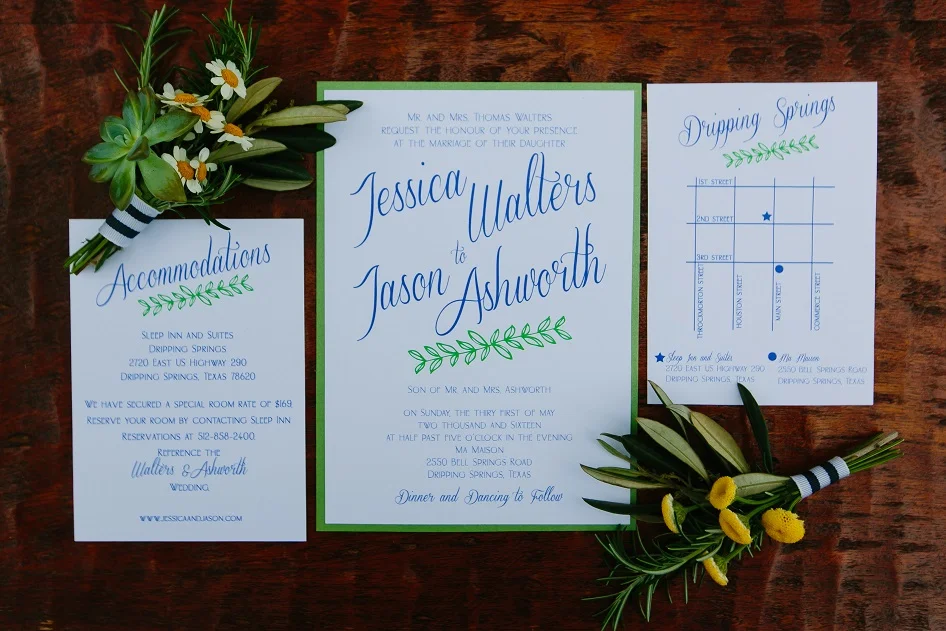 Accommodations
Sleep Inn and Suites
Dripping Springs
2720 East US Highway 290
Dripping Springs, Texas 78620
We have secured a special room rate of $169.
Reserve your room by contacting Sleep Inn
Reservations at 512-858-2400.
Reference the
Walters & Ashworth
Wedding.
www.jessicaandjason.com
Mr. and Mrs. Thomas Walters
request the honour of your presence
at the marriage of their daughter
Jessica Walters
to
Jason Ashworth
son of Mr. and Mrs. Ashworth
on Sunday, the thiry first of May
two thousand and sixteen
at half past five o'clock in the evening
Ma Maison
2550 Bell Springs Road
Dripping Springs, Texas
Dinner and Dancing to Follow
Dripping Springs
1st Street
2nd Street
3rd Street
Throckmorton Street
Houston Street
Main Street
Commerce Street
Sleep Inn and Suites
2720 East US Highway 290
Dripping Springs, Texas
Ma Maison
2550 Bell Springs Road
Dripping Springs, Texas